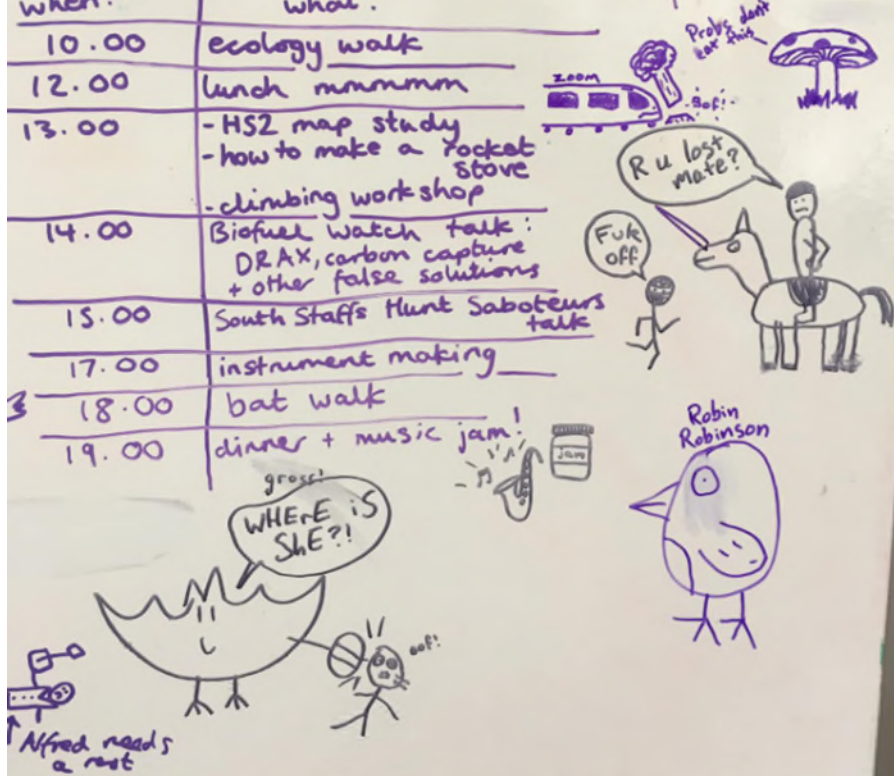 when? what?
10.00 ecology walk
12.00 lunch mmmmm
13.00 - HS2 map study
- how to make a rocket
stove
- climbing workshop
14.00 Biofuel Watch talk:
DRAX, carbon capture
+ other false solutions
15.00 South Staffs Hunt Saboteurs
talk
17.00 instrument making
18.00 bat walk
19.00 dinner + music jam!
zoom
Bof!
Probs dont
eat this
R u lost
mate?
Fuk
off
jam
Robin
Robinson
gross!
WHErE iS
ShE?!
oof!
Alfred needs
a rest